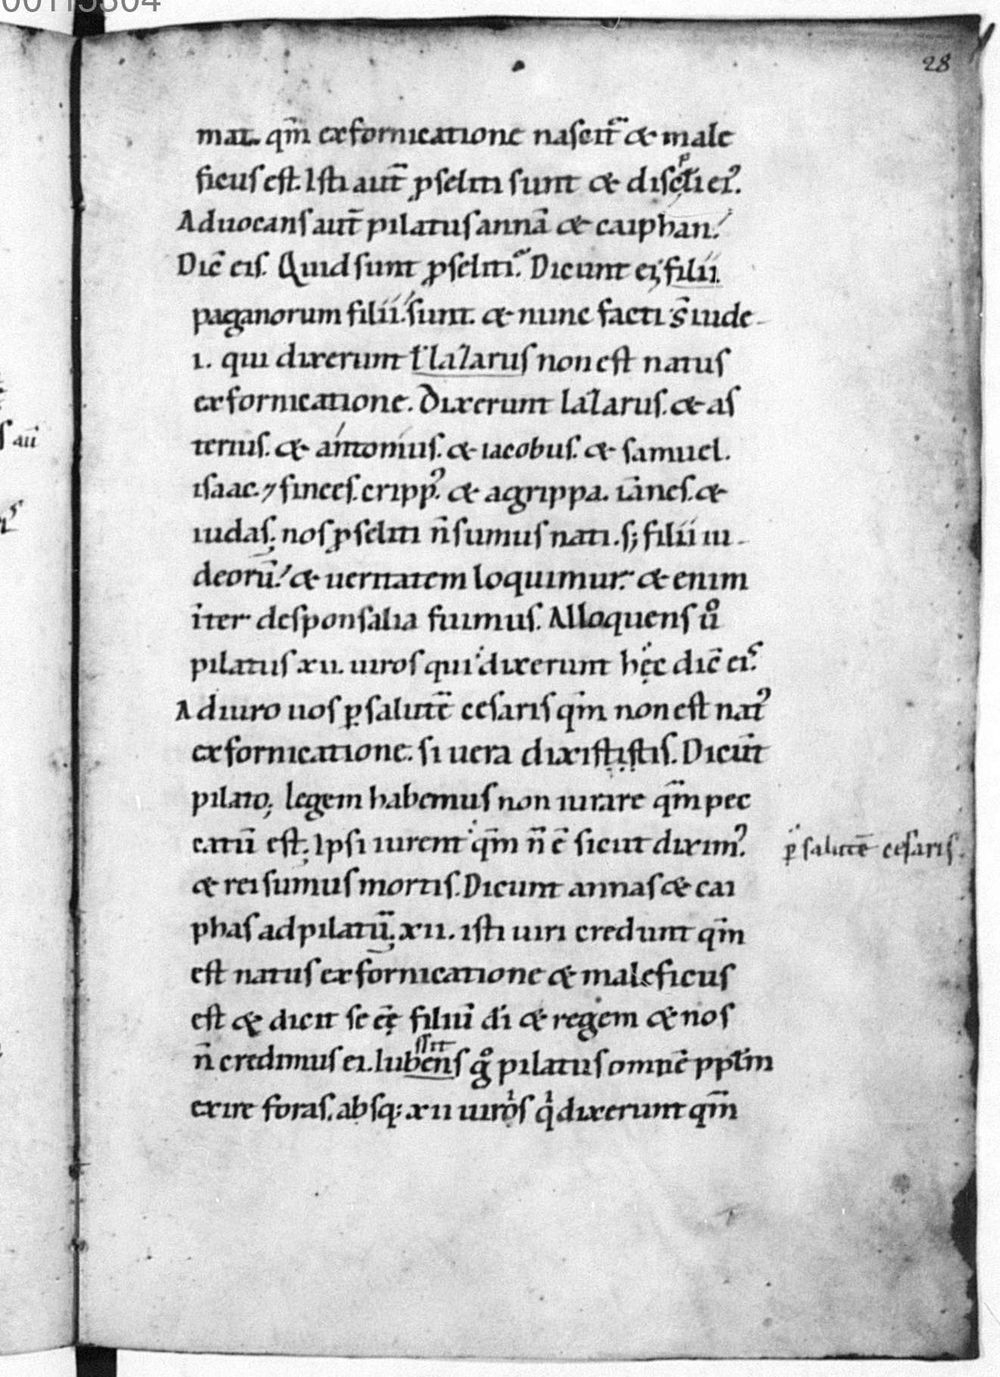 28
mat. qm̄ ex fornicatione nascit᷑ & male
ficus est. Isti aut̄ ꝓseliti sunt & disc̄li ei᾿.
Aduocans aut̄ pilatus annā & caiphan.
Dic̄ eis. Quid sunt ꝓseliti. Dicunt ei; filii
paganorum filii sunt. & nunc facti s̄ iude
i. qui dixerunt lalarus non est natus
ex fornicatione. Dixerunt lalarus. & as
terius. & antonius. & iacobus. & samuel.
isaac. ⁊ finees. cripp᾿. & agrippa. iānes. &
iudas. nos ꝓseliti n̄ sumus nati. s; filii iu
deorū. & ueritatem loquimur. & enim
īter desponsalia fuimus. Alloquens uͦ
pilatus xii. uiros qui dixerunt hęc dic̄ eis.
Adiuro uos ꝑ salutē cesaris qm̄ non est nat᾿
ex fornicatione. si uera dixististis. Dicūt
pilato; legem habemus non iurare qm̄ pec
catū est; Ipsi iurent qm̄ n̄ ē sicut dixim᾿.
ꝑ salutē cesaris.
& rei sumus mortis. Dicunt annas & cai
phas ad pilatū; xii. isti uiri credunt qm̄
est natus ex fornicatione & maleficus
est & dicit se eē filiū dī & regem & nos
n̄ credimus ei. Iubens gͦ pilatus omnē pplm̄
ssit
exire foras. absq; xii uiros qͥ dixerunt qm̄